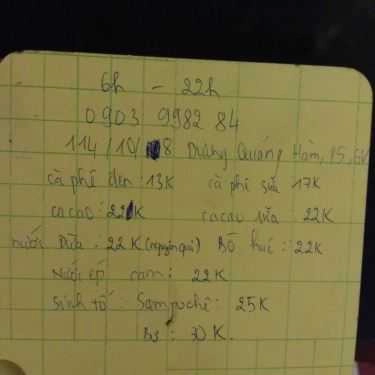 6h - 22h
0903 9982 84
114/10/8 Dương Quảng Hàm, P5, GV
cà phê đen: 13K cà phê sữa 17K
cacao: 21K cacao sữa: 22K
nước Dừa: 22K (nguyên quả) Bò húc: 22K
Nước ép cam: 22K
Sinh tố: Sampochê: 25K
Bơ: 30K.